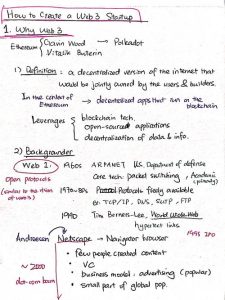 How to Create a Web3 Startup
1. Why Web3
Ethereum Gavin Wood → Polkadot
Vitalik Buterin
1) Definition: a decentralized version of the internet that
would be jointly owned by the users & builders.
In the context of Ethereum → decentralized apps that run on the blockchain
Leverages blockchain tech.
open-sourced applications
decentralization of data & info.
2) Backgrounder
Web 1: 1960s ARPANET U.S. Department of defense
Open protocols core tech: packet switching, Academia
(similar to the vision of web3) 1970-80s Protocols freely available
Ex. TCP/IP, DNS, SMTP, FTP
1990 Tim Berners-Lee, World Wide Web
hypertext links
Andreessen Netscape → Navigator browser 1995 IPO
• Few people created content
~2000 • VC
dot-com bomb • business model: advertising (popular)
• small part of global pop.